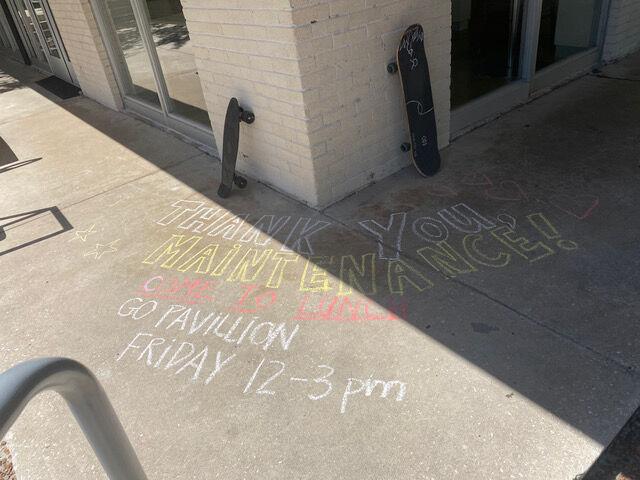 THANK YOU,
MAINTENANCE!
COME TO LUNCH
GO PAVILLION
FRIDAY 12-3pm